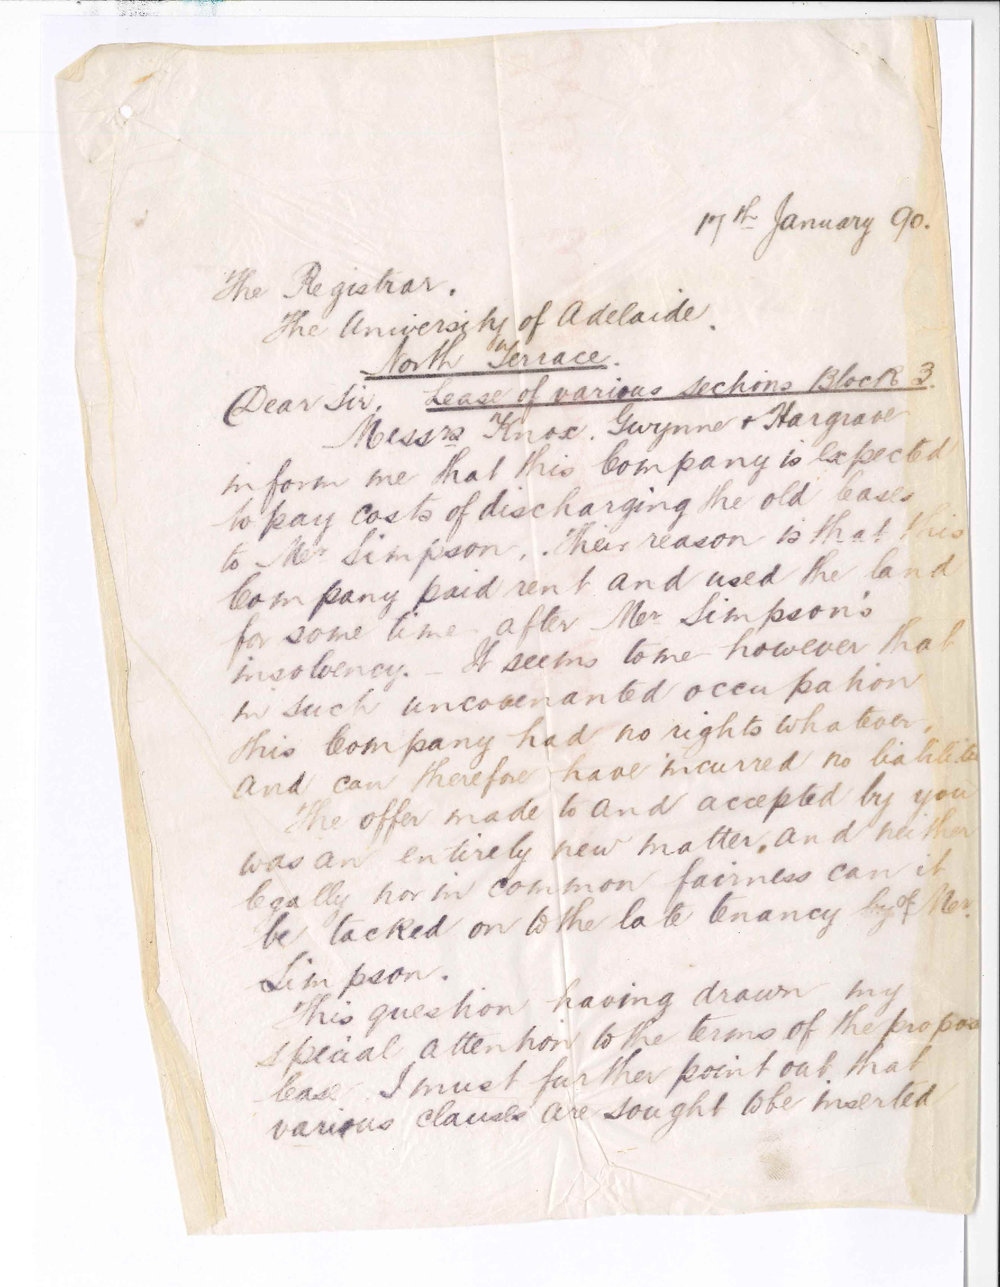 17th January 90.
The Registrar.
The University of Adelaide.
North Terrace.
Dear Sir, Lease of various sections Block 3.
Messrs Knox, Gwynne & Hargrave
inform me that this Company is expected
to pay costs of discharging the old leases
to Mr Simpson. Their reason is that this
Company paid rent and used the land
for some time after Mr Simpson's
insolvency. – It seems to me however that
in such uncovenanted occupation
this Company had no rights whatever,
and can therefore have incurred no liabilities
The offer made to and accepted by you
was an entirely new matter, and neither
legally nor in common fairness can it
be tacked on to the late tenancy by of Mr.
Simpson.
This question having drawn my
special attention to the terms of the propos
lease I must further point out that
various clauses are sought to be inserted